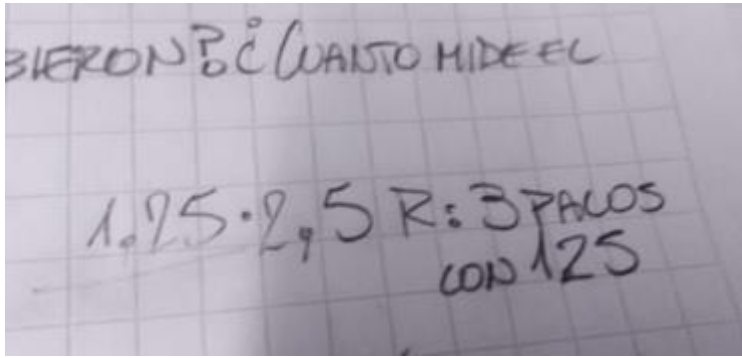 BIERON? ¿CUANTO MIDE EL
1.25·2,5 R: 3 PALOS
CON 125